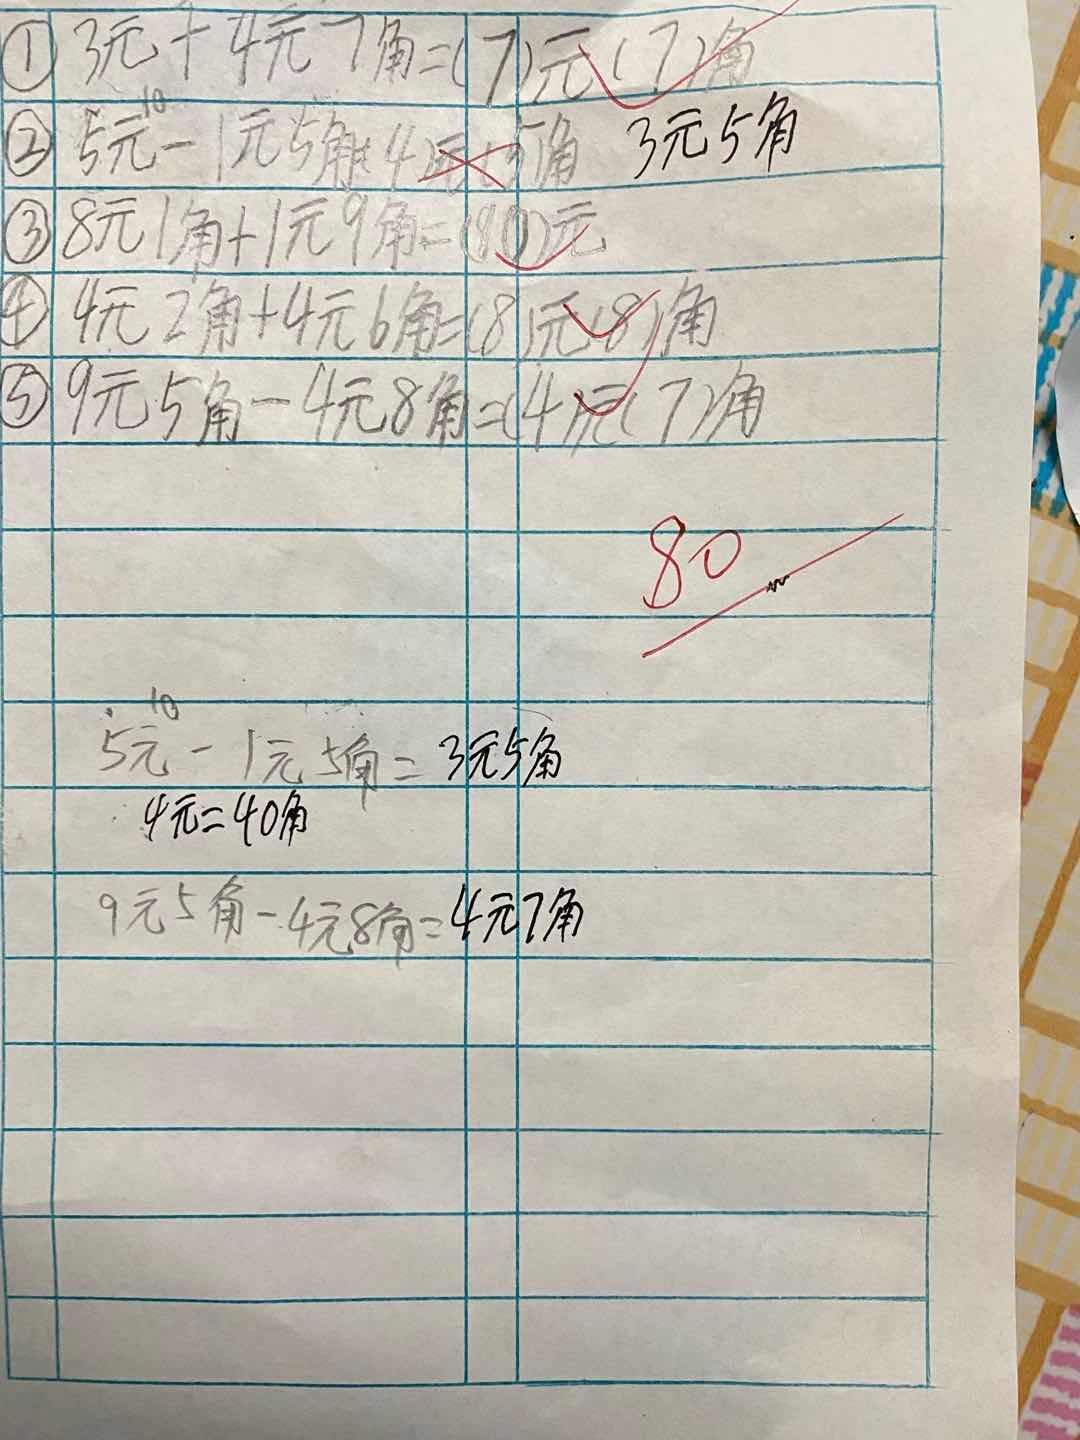 ① 3元+4元7角=(7)元(7)角
10
② 5元-1元5角=(4)元(5)角 3元5角
③ 8元1角+1元9角=(10)元
④ 4元2角+4元6角=(8)元(8)角
⑤ 9元5角-4元8角=(4)元(7)角
80
10
5元-1元5角=3元5角
4元=40角
9元5角-4元8角=4元7角